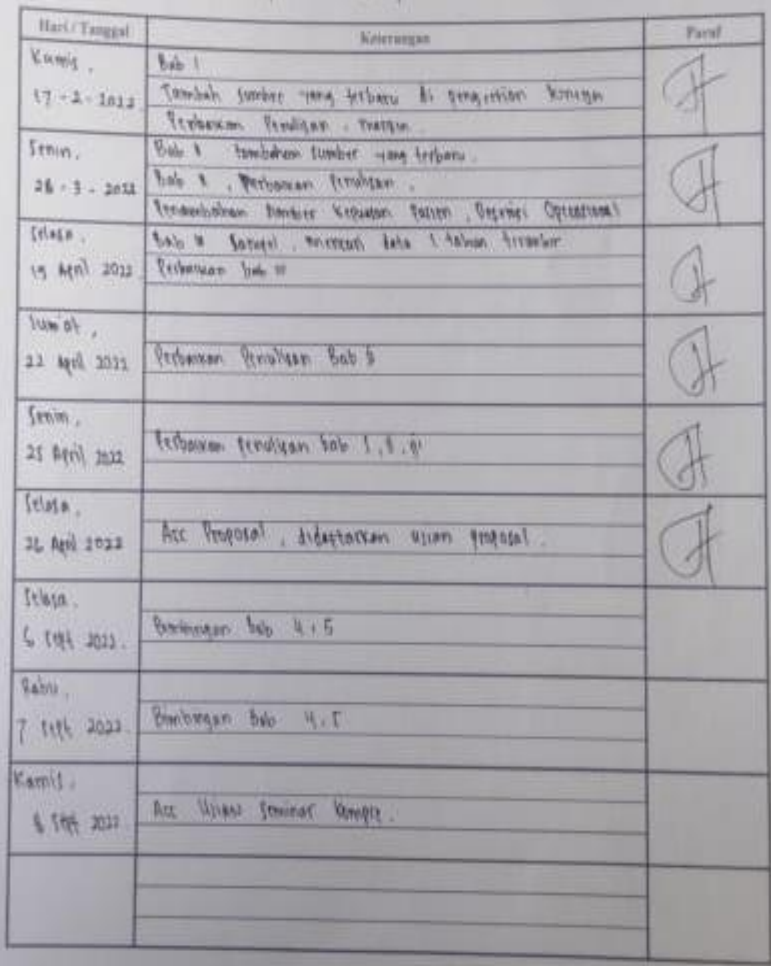 Hari / Tanggal Keterangan Paraf
Kamis, Bab I
17 - 2 - 2022 Tambah sumber yang terbaru di pengertian
Perbaikan Penulisan, margin.
Senin, Bab I tambahan sumber yang terbaru.
28 - 3 - 2022 Bab II, Perbaikan Penulisan,
Penambahan Kepuasan Pasien, Definisi Operasional
Selasa, Bab III, mencari data 1 tahun terakhir
19 April 2022 Perbaikan bab III
Jum'at,
22 April 2022 Perbaikan Penulisan Bab
Senin,
25 April 2022 Perbaikan penulisan bab I, II,
Selasa,
26 April 2022 Acc Proposal, didaftarkan ujian proposal.
Selasa,
6 Sept 2022. Bimbingan bab 4, 5
Rabu,
7 Sept 2022. Bimbingan Bab 4, 5
Kamis,
8 Sept 2022 Acc Ujian Seminar kompre.